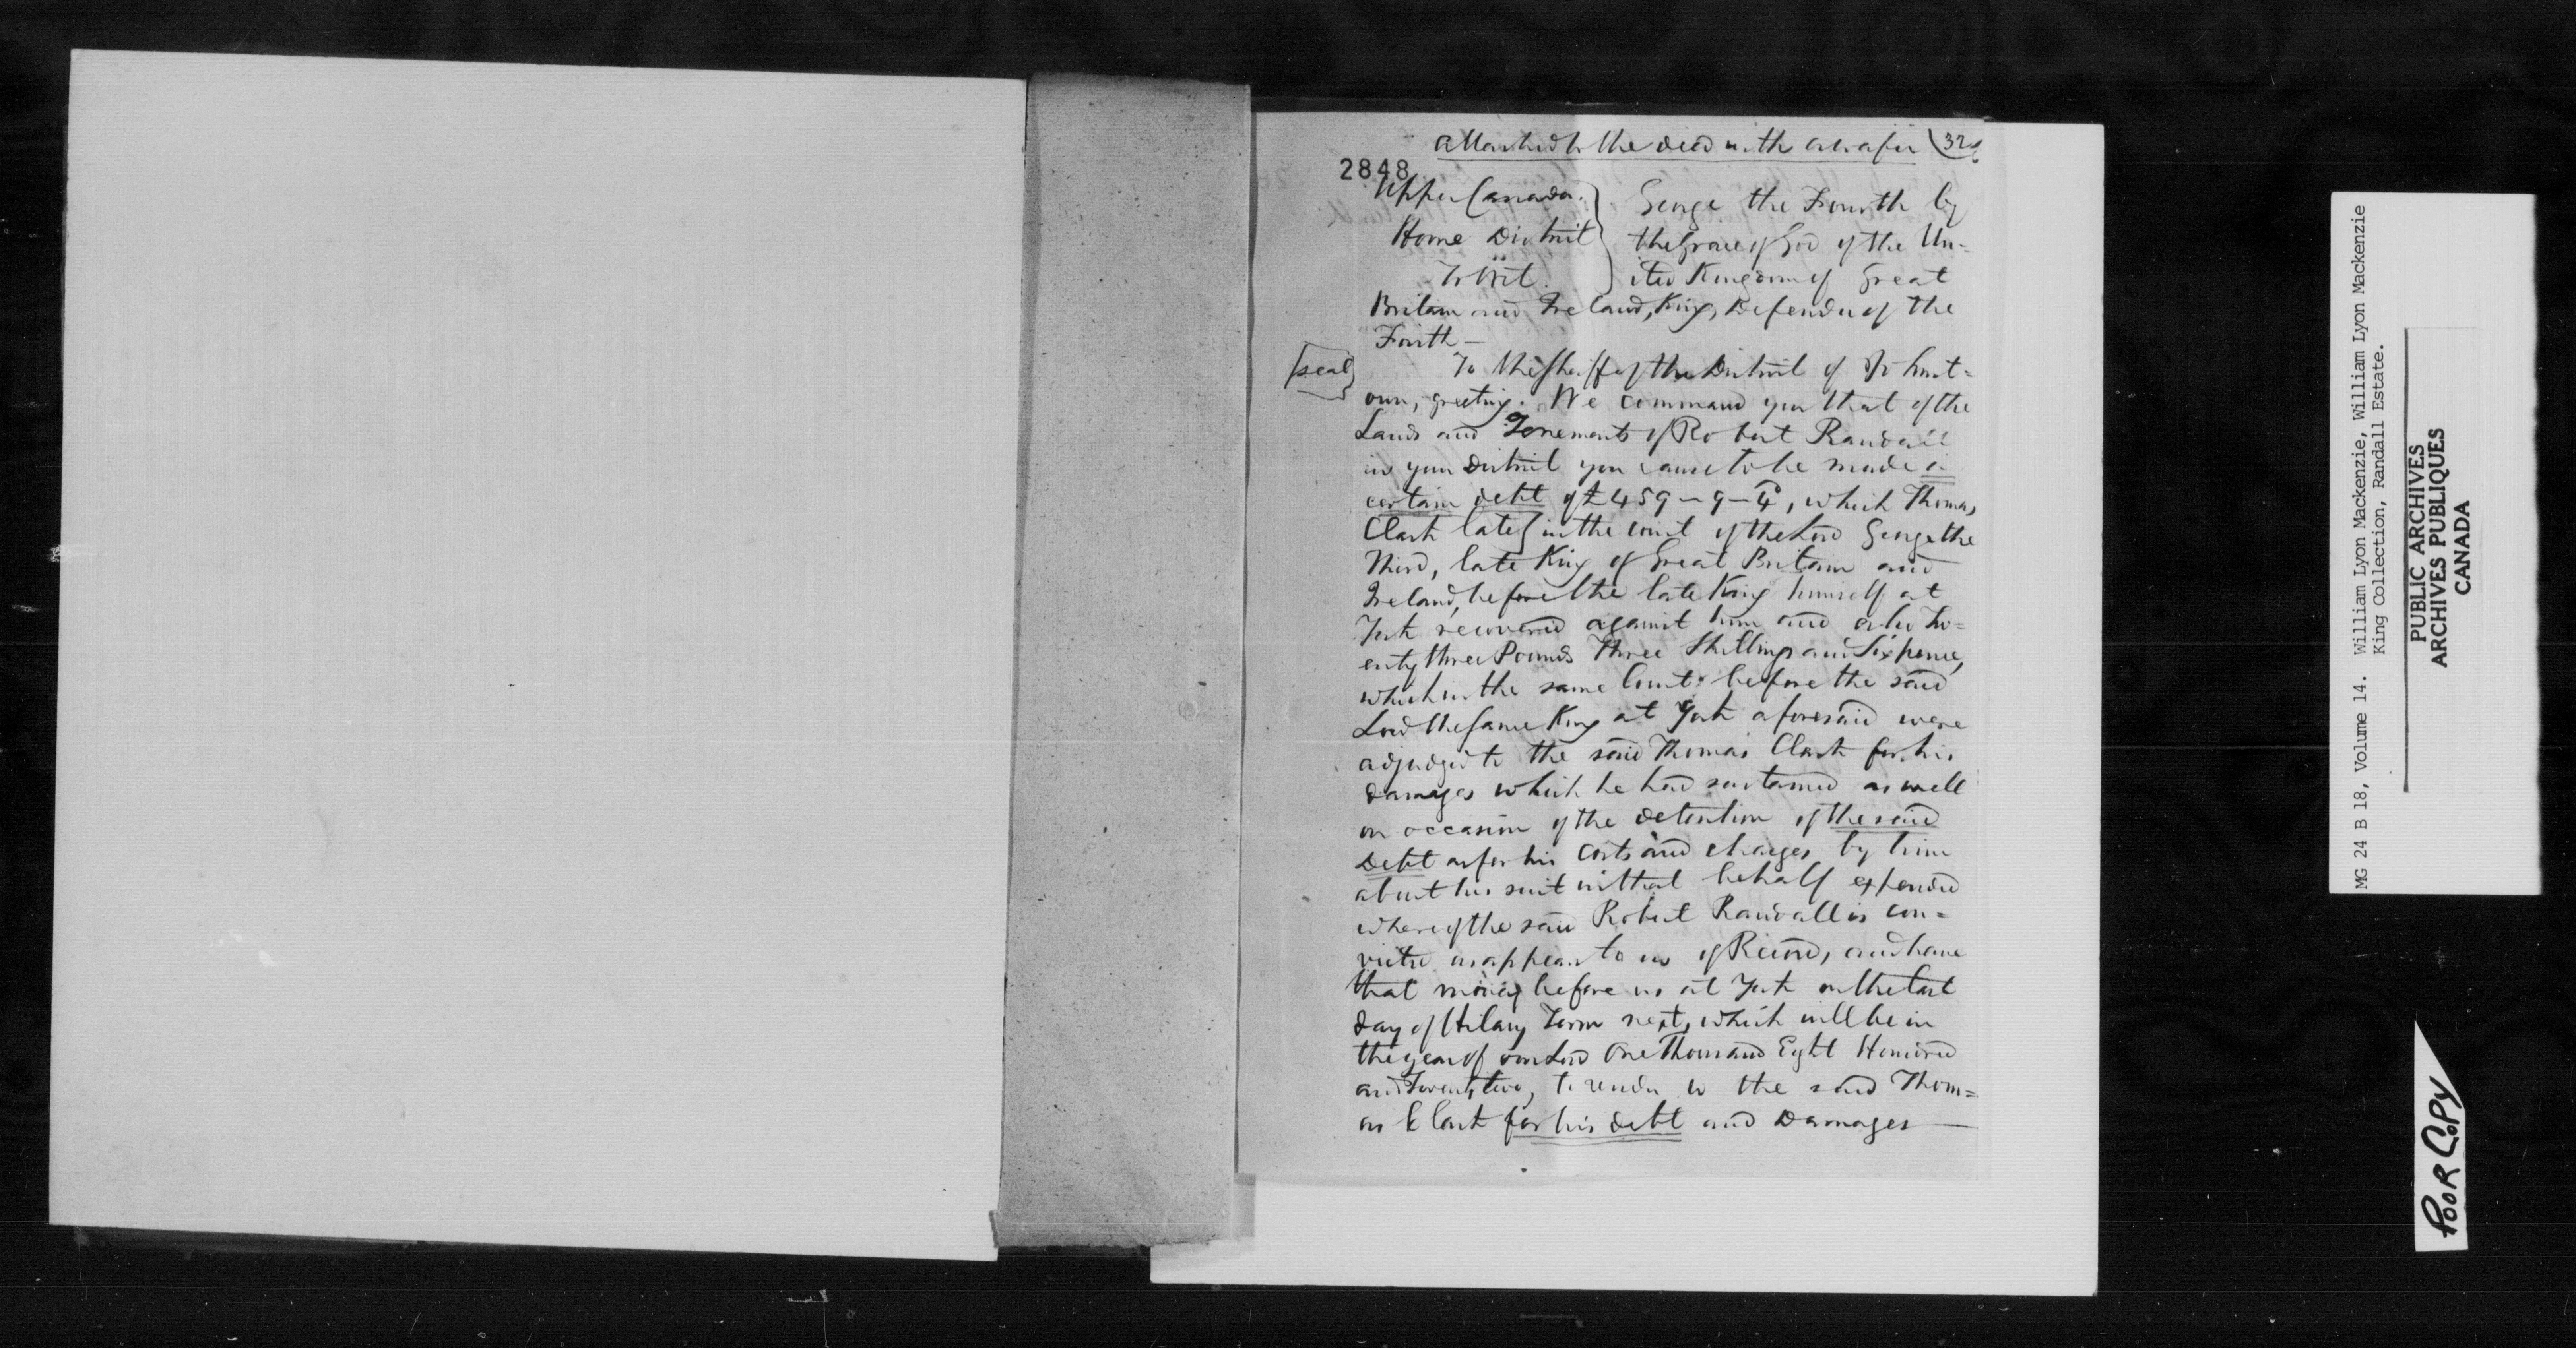 attached to the deed with a wafer (32
2848
Upper Canada. } George the Fourth by
Home District } the Grace of God of the Un=
To Wit. } ited Kingdom of Great
Britain and Ireland, King, Defender of the
Faith —
[seal]
To the Sheriff of the District of Johnst=
own, greeting. We command you that of the
Lands and Tenements of Robert Randall
in your District you cause to be made a
certain debt of £459 - 9 - 4, which Thomas
Clark lately in the court of the Lord George the
Third, late King of Great Britain and
Ireland, before the late King himself at
York recovered against him and also Tw=
enty three Pounds Three Shillings and Sixpence,
which in the same Court before the said
Lord the same King at York aforesaid were
adjudged to the said Thomas Clark for his
damages which he had sustained as well
on occasion of the detention of the said
Debt as for his costs and charges by him
about his suit in that behalf expended
whereof the said Robert Randall is con=
victed as appears to us of Record, and have
that money before us at York on the last
day of Hilary Term next, which will be in
the year of our Lord One Thousand Eight Hundred
and Twenty two, to render to the said Thom=
as Clark for his debt and Damages —
MG 24 B 18, Volume 14. William Lyon Mackenzie, William Lyon Mackenzie
King Collection, Randall Estate.
PUBLIC ARCHIVES
ARCHIVES PUBLIQUES
CANADA
POOR COPY